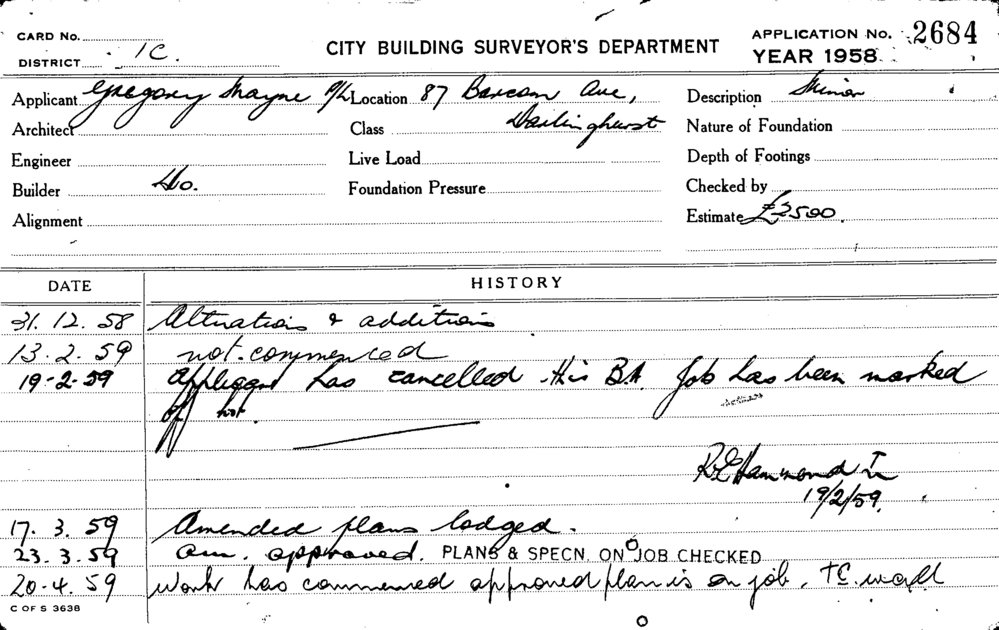 CARD No.
DISTRICT 1C.
CITY BUILDING SURVEYOR'S DEPARTMENT
APPLICATION No. 2684
YEAR 1958
Applicant Gregory Mayne P/L Location 87 Barcom Ave, Description Minor
Architect Class Darlinghurst Nature of Foundation
Engineer Live Load Depth of Footings
Builder Do. Foundation Pressure Checked by
Alignment Estimate £2500.
DATE HISTORY
31.12.58 Alterations & additions
13.2.59 not commenced
19-2-59 Applicant has cancelled this B.A Job has been marked
off
R E Hammond
19/2/59.
17.3.59 Amended plans lodged.
23.3.59 am. approved. PLANS & SPECN. ON JOB CHECKED
20.4.59 work has commenced approved plan is on job.
C OF S 3638